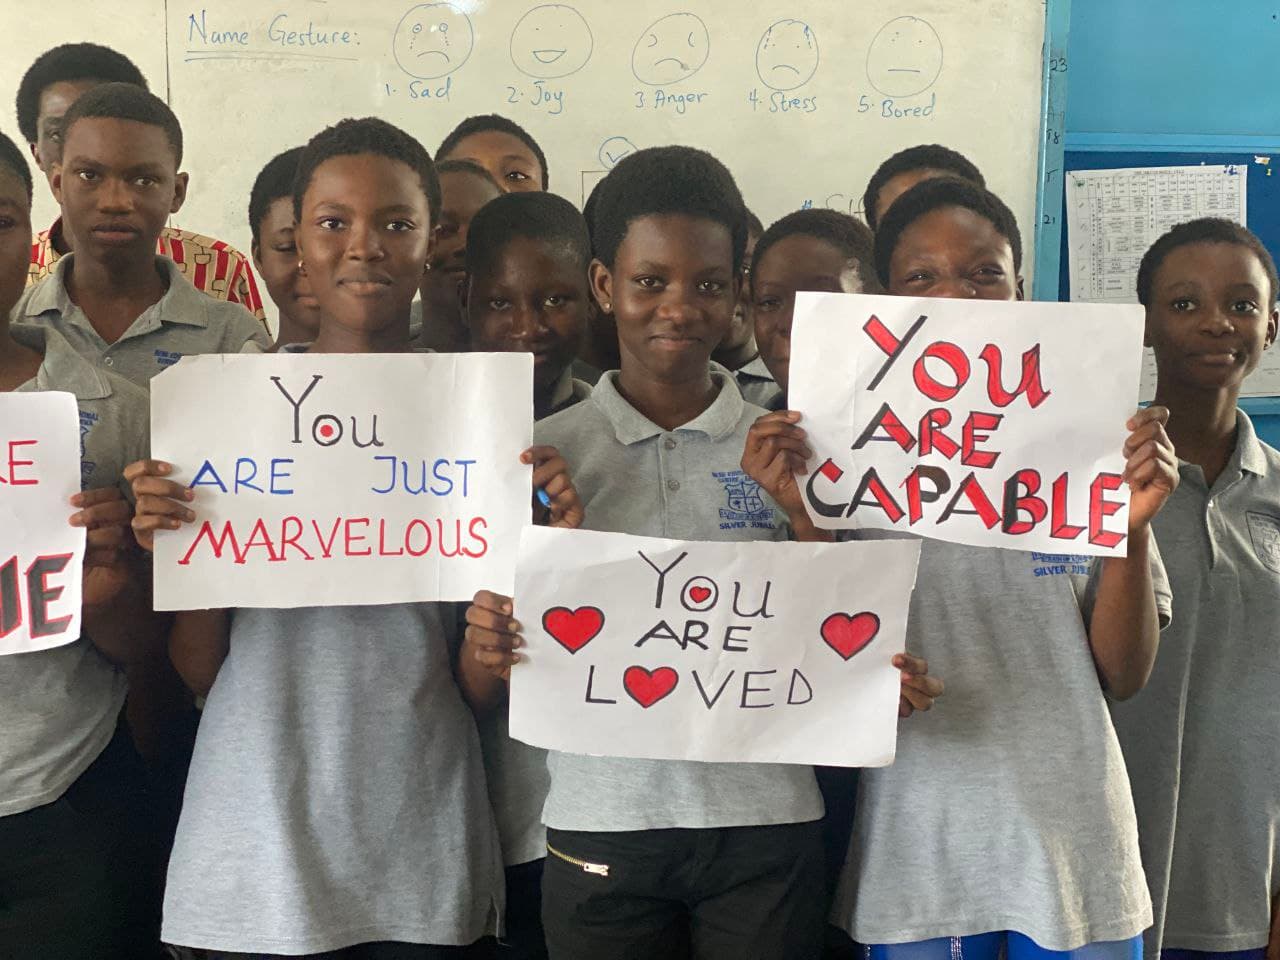 Name Gesture:
1. Sad
2. Joy
3. Anger
4. Stress
5. Bored
23
18
21
RE
YOU
ARE JUST
MARVELOUS
YOU
ARE
LOVED
YOU
ARE
CAPABLE
SILVER JUBILEE
SILVER JUBI